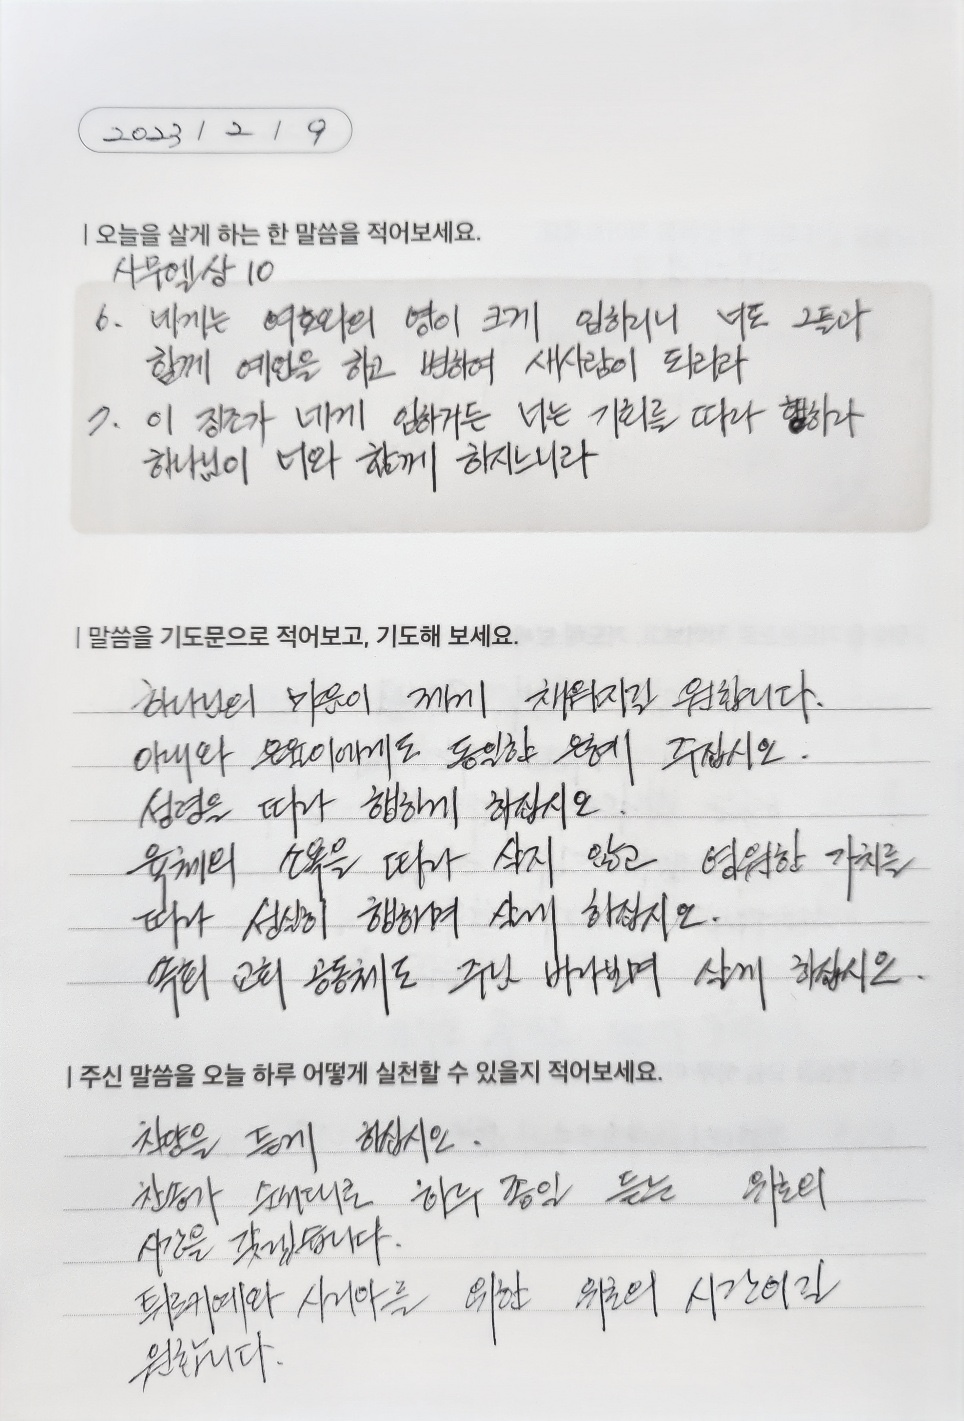 2023 / 2 / 9
| 오늘을 살게 하는 한 말씀을 적어보세요.
사무엘상 10
6. 네게는 여호와의 영이 크게 임하리니 너도 그들과
함께 예언을 하고 변하여 새사람이 되리라
7. 이 징조가 네게 임하거든 너는 기회를 따라 행하라
하나님이 너와 함께 하시느니라
| 말씀을 기도문으로 적어보고, 기도해 보세요.
하나님의 마음이 제게 채워지길 원합니다.
아내와 에게도 동일한 은혜 주십시오.
성령을 따라 행하게 하십시오.
육체의 소욕을 따라 살지 않고 영원한 가치를
따라 성실히 행하며 살게 하십시오.
특히 교회 공동체도 주님 바라보며 살게 하십시오.
| 주신 말씀을 오늘 하루 어떻게 실천할 수 있을지 적어보세요.
찬양을 듣게 하십시오.
찬송가 하루 종일 듣는 위로의
시간을 갖겠습니다.
튀르키예와 시리아를 위한 위로의 시간이길
원합니다.